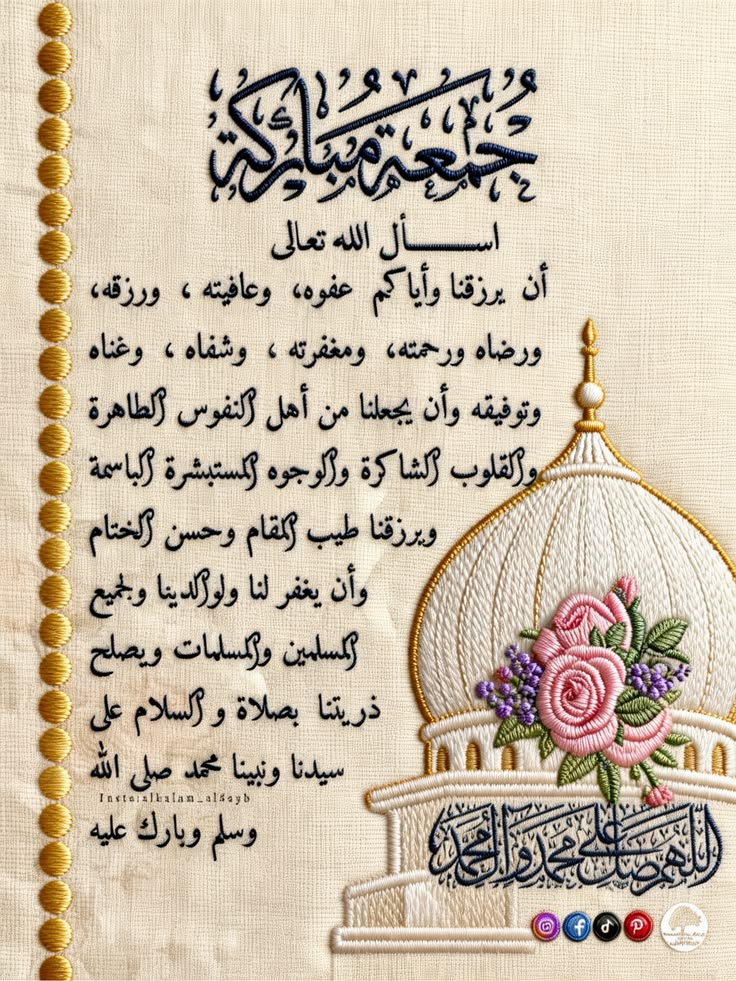 جُمعة مُباركة
اســــــأل الله تعالى
أن يرزقنا وأياكم عفوه، وعافيته ، ورزقه،
ورضاه ورحمته، ومغفرته ، وشفاه ، وغناه
وتوفيقه وأن يجعلنا من أهل النفوس الطاهرة
والقلوب الشاكرة والوجوه المستبشرة الباسمة
ويرزقنا طيب المقام وحسن الختام
وأن يغفر لنا ولوالدينا ولجميع
المسلمين والمسلمات ويصلح
ذريتنا بصلاة و السلام على
سيدنا ونبينا محمد صلى الله
Insta:alkalam_altayb
وسلم وبارك عليه
اللهم صل على محمد وآل محمد